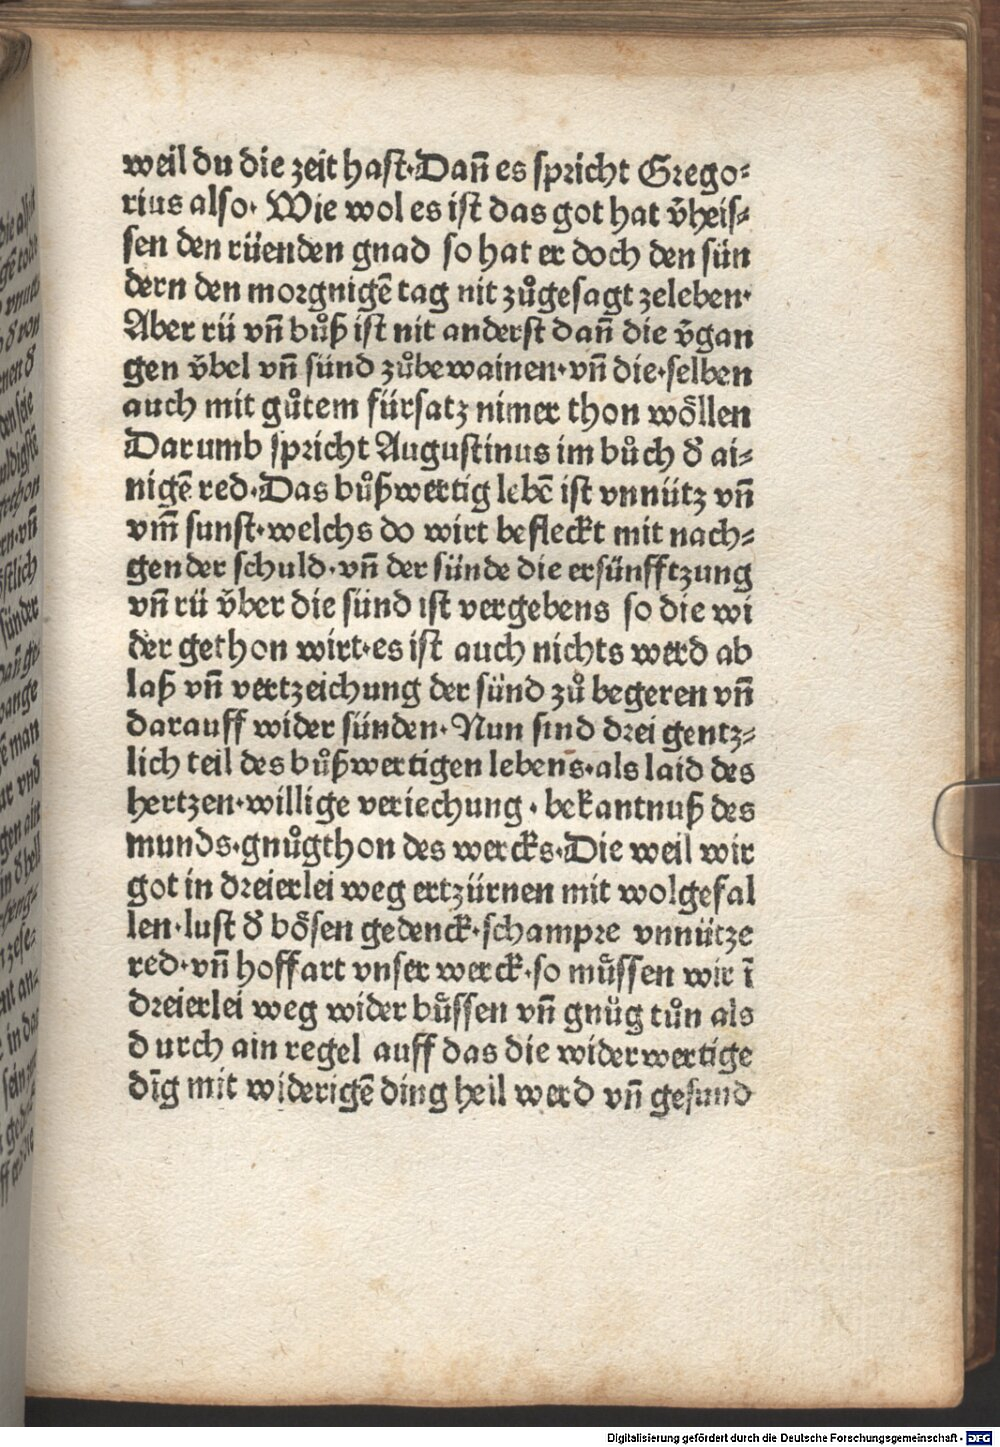 weil du die zeit hast·Dan̄ es spricht Grego⸗
rius also· Wie wol es ist das got hat v̄heis⸗
sen den rüenden gnad so hat er doch den sün
dern den morgnigē tag nit zůgesagt zeleben·
Aber rü vn̄ bůß ist nit anderst dan̄ die v̄gan
gen v̈bel vn̄ sünd zůbewainen·vn̄ die·selben
auch mit gůtem fürsatz nimer thon wöllen
Darumb spricht Augustinus im bůch d̄ ai⸗
nigē red·Das bůßwertig lebē ist vnnütz vn̄
vm̄ sunst·welchs do wirt befleckt mit nach⸗
gender schuld·vn̄ der sünde die ersünfftzung
vn̄ rü v̈ber die sünd ist vergebens so die wi
der gethon wirt·es ist auch nichts werd ab
laß vn̄ vertzeichung der sünd zů begeren vn̄
darauff wider sünden·Nun sind drei gentz⸗
lich teil des bůßwertigen lebens·als laid des
hertzen·willige veriechung·bekantnuß des
munds·gnůgthon des wercks·Die weil wir
got in dreierlei weg ertzürnen mit wolgefal
len·lust d̄ bösen gedenck·schampre vnnütze
red·vn̄ hoffart vnser werck·so müssen wir ī
dreierlei weg wider büssen vn̄ gnůg tůn als
durch ain regel auff das die widerwertige
dīg mit widerigē ding heil werd vn̄ gesund
Digitalisierung gefördert durch die Deutsche Forschungsgemeinschaft - DFG